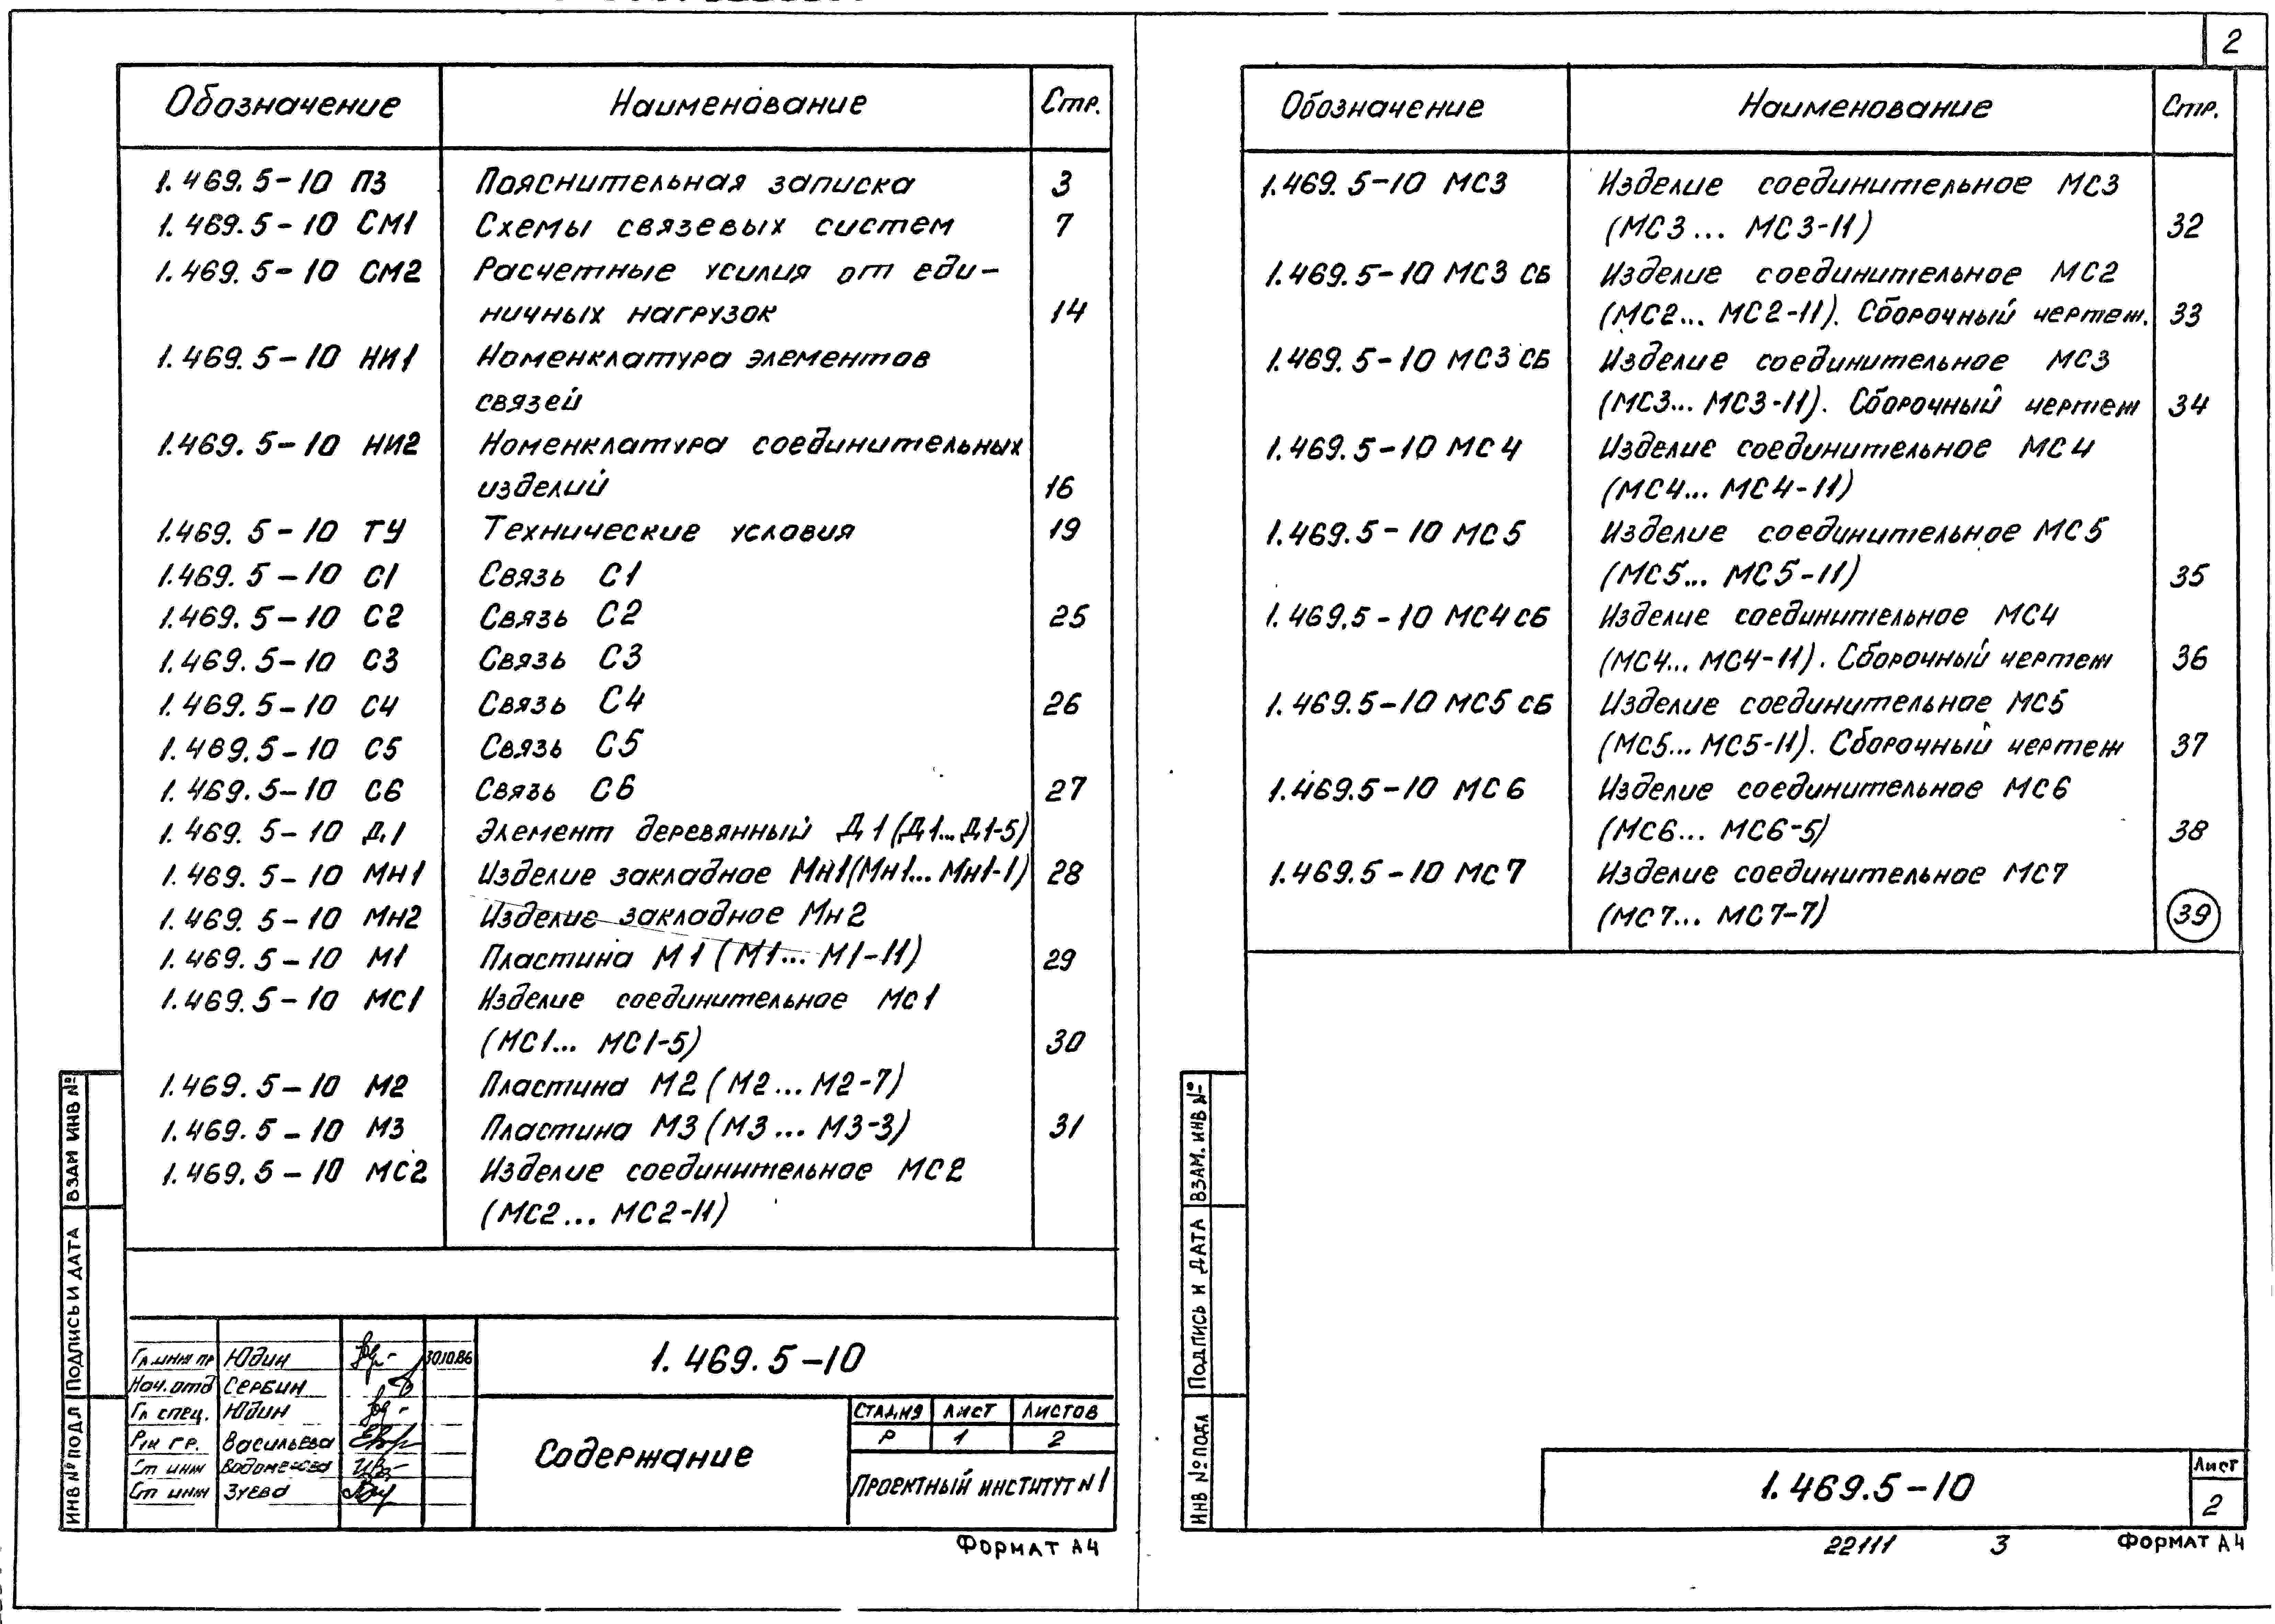 Обозначение Наименование Стр.
1.469.5-10 ПЗ Пояснительная записка 3
1.469.5-10 СМ1 Схемы связевых систем 7
1.469.5-10 СМ2 Расчетные усилия от еди-
ничных нагрузок 14
1.469.5-10 НИ1 Номенклатура элементов
связей
1.469.5-10 НИ2 Номенклатура соединительных
изделий 16
1.469.5-10 ТУ Технические условия 19
1.469.5-10 С1 Связь С1
1.469.5-10 С2 Связь С2 25
1.469.5-10 С3 Связь С3
1.469.5-10 С4 Связь С4 26
1.469.5-10 С5 Связь С5
1.469.5-10 С6 Связь С6 27
1.469.5-10 Д1 Элемент деревянный Д1 (Д1...Д1-5)
1.469.5-10 Мн1 Изделие закладное Мн1(Мн1...Мн1-1) 28
1.469.5-10 Мн2 Изделие закладное Мн2
1.469.5-10 М1 Пластина М1 (М1...М1-11) 29
1.469.5-10 МС1 Изделие соединительное Мс1
(МС1... МС1-5) 30
1.469.5-10 М2 Пластина М2 (М2...М2-7)
1.469.5-10 М3 Пластина М3 (М3...М3-3) 31
1.469.5-10 МС2 Изделие соединительное МС2
(МС2... МС2-11)
ВЗАМ ИНВ №
ПОДПИСЬ И ДАТА
ИНВ № ПОДЛ
Гл инж пр Юдин 30.10.86
Нач.отд Сербин
Гл спец. Юдин
Рук гр. Васильева
Ст инж
Ст инж Зуева
1.469.5-10
Содержание
СТАДИЯ ЛИСТ ЛИСТОВ
Р 1 2
ПРОЕКТНЫЙ ИНСТИТУТ N1
ФОРМАТ А4
2
Обозначение Наименование Стр.
1.469.5-10 МС3 Изделие соединительное МС3
(МС3... МС3-11) 32
1.469.5-10 МС3 СБ Изделие соединительное МС2
(МС2... МС2-11). Сборочный чертеж. 33
1.469.5-10 МС3 СБ Изделие соединительное МС3
(МС3... МС3-11). Сборочный чертеж 34
1.469.5-10 МС4 Изделие соединительное МС4
(МС4... МС4-11)
1.469.5-10 МС5 Изделие соединительное МС5
(МС5... МС5-11) 35
1.469.5-10 МС4 СБ Изделие соединительное МС4
(МС4... МС4-11). Сборочный чертеж 36
1.469.5-10 МС5 СБ Изделие соединительное МС5
(МС5... МС5-11). Сборочный чертеж 37
1.469.5-10 МС6 Изделие соединительное МС6
(МС6... МС6-5) 38
1.469.5-10 МС7 Изделие соединительное МС7
(МС7... МС7-7) 39
ВЗАМ. ИНВ №
ПОДПИСЬ И ДАТА
ИНВ № ПОДЛ
1.469.5-10
Лист
2
22111 3 ФОРМАТ А4